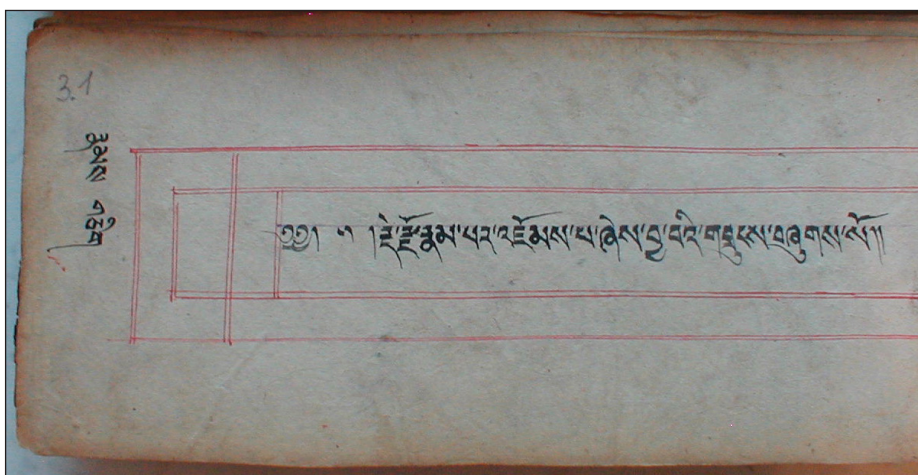 3.1
རྣམས གཅིག
༄༅། ། །རྡོ་རྗེ་རྣམ་པར་འཇོམས་པ་ཞེས་བྱ་བའི་གཟུངས་བཞུགས་སོ།།